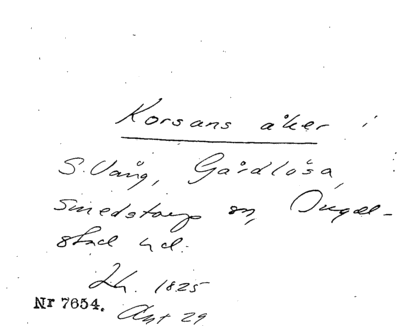 Korsans åker i
S. Vång, Gårdlösa,
Smedstorp sn, Ingel-
stad hd.
Lh. 1825
Akt 29
Nr 7654.